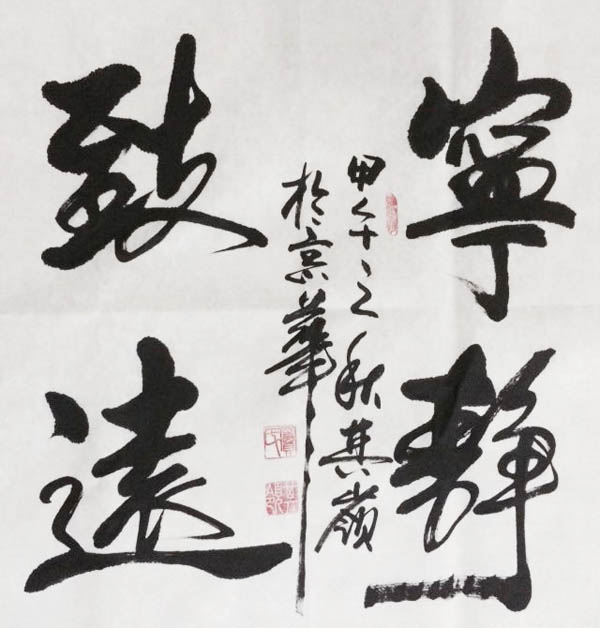 寧靜
致遠
甲午之秋其嶺
於京華